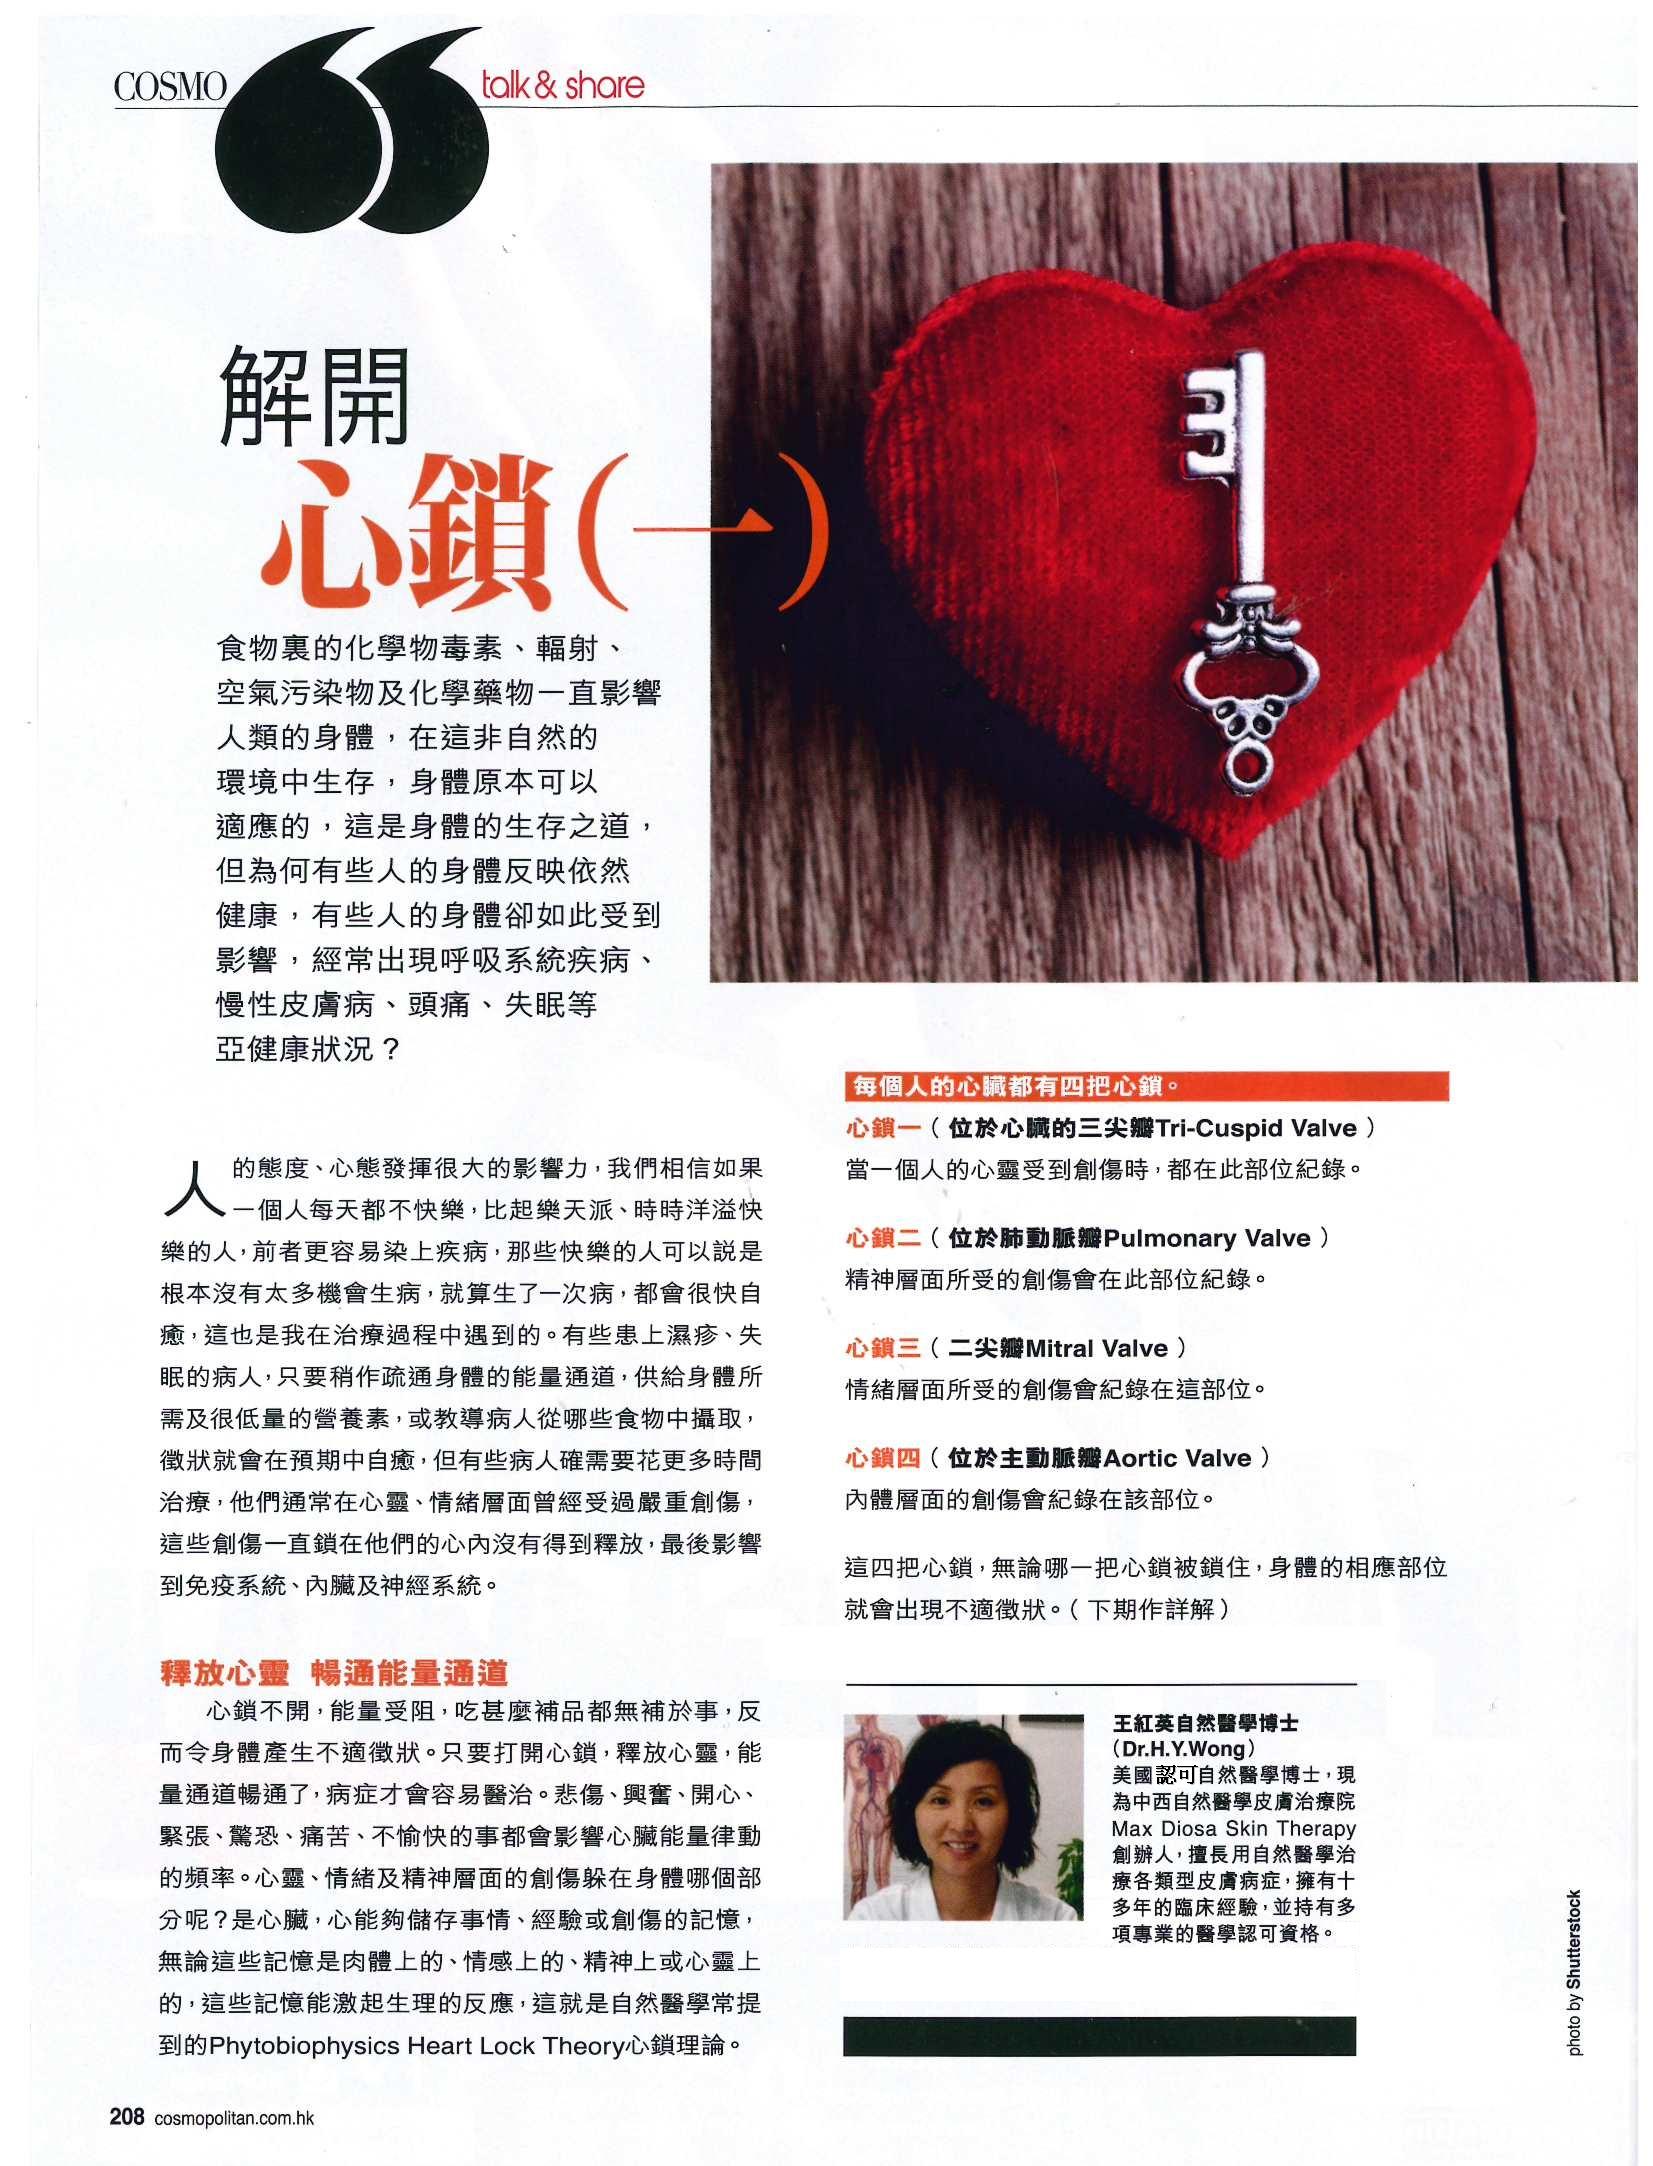 COSMO
talk & share
解開
心鎖(一)
食物裏的化學物毒素、輻射、
空氣污染物及化學藥物一直影響
人類的身體，在這非自然的
環境中生存，身體原本可以
適應的，這是身體的生存之道，
但為何有些人的身體反映依然
健康，有些人的身體卻如此受到
影響，經常出現呼吸系統疾病、
慢性皮膚病、頭痛、失眠等
亞健康狀況？
人的態度、心態發揮很大的影響力，我們相信如果
一個人每天都不快樂，比起樂天派、時時洋溢快
樂的人，前者更容易染上疾病，那些快樂的人可以説是
根本沒有太多機會生病，就算生了一次病，都會很快自
癒，這也是我在治療過程中遇到的。有些患上濕疹、失
眠的病人，只要稍作疏通身體的能量通道，供給身體所
需及很低量的營養素，或教導病人從哪些食物中攝取，
徵狀就會在預期中自癒，但有些病人確需要花更多時間
治療，他們通常在心靈、情緒層面曾經受過嚴重創傷，
這些創傷一直鎖在他們的心內沒有得到釋放，最後影響
到免疫系統、內臟及神經系統。
釋放心靈 暢通能量通道
心鎖不開，能量受阻，吃甚麼補品都無補於事，反
而令身體產生不適徵狀。只要打開心鎖，釋放心靈，能
量通道暢通了，病症才會容易醫治。悲傷、興奮、開心、
緊張、驚恐、痛苦、不愉快的事都會影響心臟能量律動
的頻率。心靈、情緒及精神層面的創傷躲在身體哪個部
分呢？是心臟，心能夠儲存事情、經驗或創傷的記憶，
無論這些記憶是肉體上的、情感上的、精神上或心靈上
的，這些記憶能激起生理的反應，這就是自然醫學常提
到的Phytobiophysics Heart Lock Theory心鎖理論。
每個人的心臟都有四把心鎖。
心鎖一（位於心臟的三尖瓣Tri-Cuspid Valve）
當一個人的心靈受到創傷時，都在此部位紀錄。
心鎖二（位於肺動脈瓣Pulmonary Valve）
精神層面所受的創傷會在此部位紀錄。
心鎖三（二尖瓣Mitral Valve）
情緒層面所受的創傷會紀錄在這部位。
心鎖四（位於主動脈瓣Aortic Valve）
內體層面的創傷會紀錄在該部位。
這四把心鎖，無論哪一把心鎖被鎖住，身體的相應部位
就會出現不適徵狀。（下期作詳解）
王紅英自然醫學博士
（Dr.H.Y.Wong）
美國認可自然醫學博士，現
為中西自然醫學皮膚治療院
Max Diosa Skin Therapy
創辦人，擅長用自然醫學治
療各類型皮膚病症，擁有十
多年的臨床經驗，並持有多
項專業的醫學認可資格。
photo by Shutterstock
208 cosmopolitan.com.hk